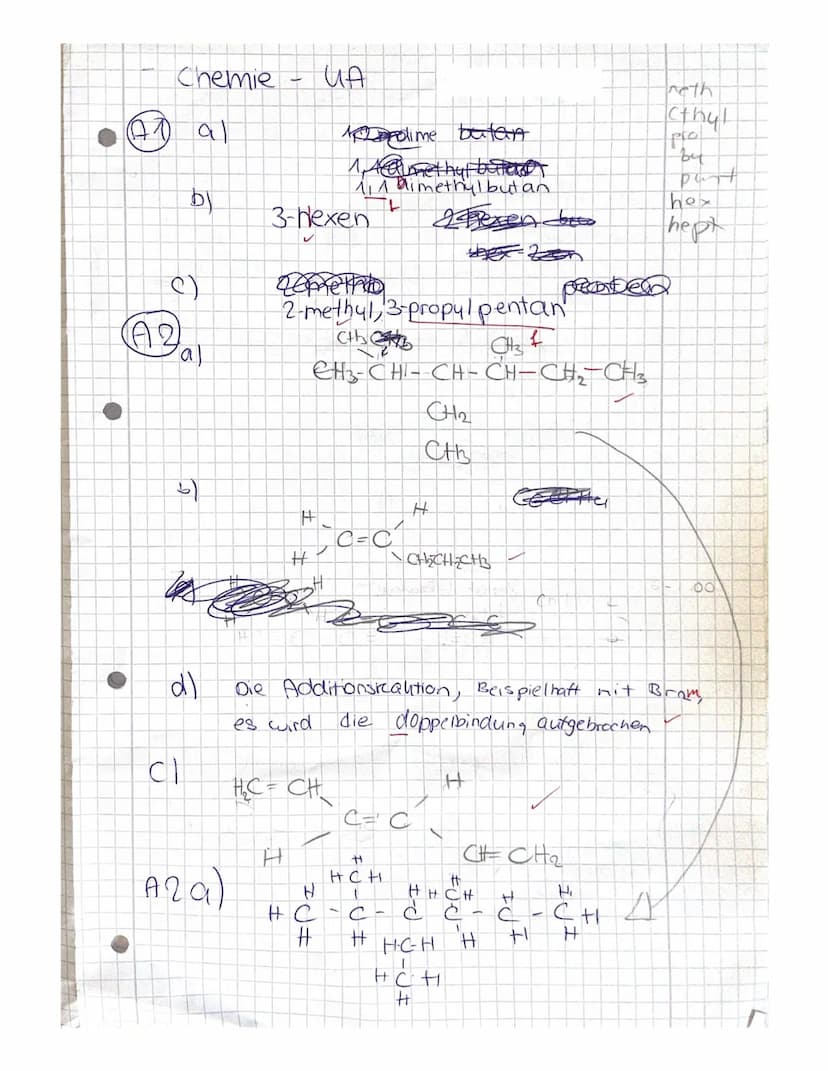 Chemie - UA
meth
Ethyl
pro
by
pent
hex
hept
A1 a)
butan
1,1 dimethylbutan
b) 3-hexen
c)
2-methyl, 3-propylpentan
f
A2
a)
CH3 CH3
CH3-CH-CH-CH-CH2-CH3
CH2
CH3
b)
H H
C=C
H CH2CH2CH3
d) Die Additionsreaktion, Beispielhaft mit Brom,
es wird die doppelbindung aufgebrochen
c) H2C=CH H
C=C
H CH=CH2
A2a)
H
H C H H
H H H H C H H H
H C - C - C C - C - C H
H H H-C-H H H H
H C H
H